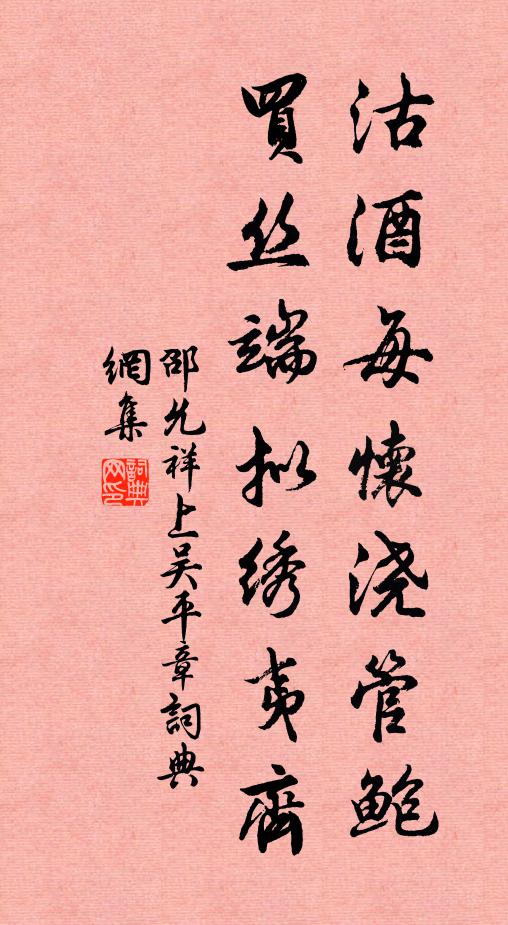 沽酒每懷浇管鲍
買丝端拟绣夷齊
邵允祥上吴平章詞典
網集
詞典网印